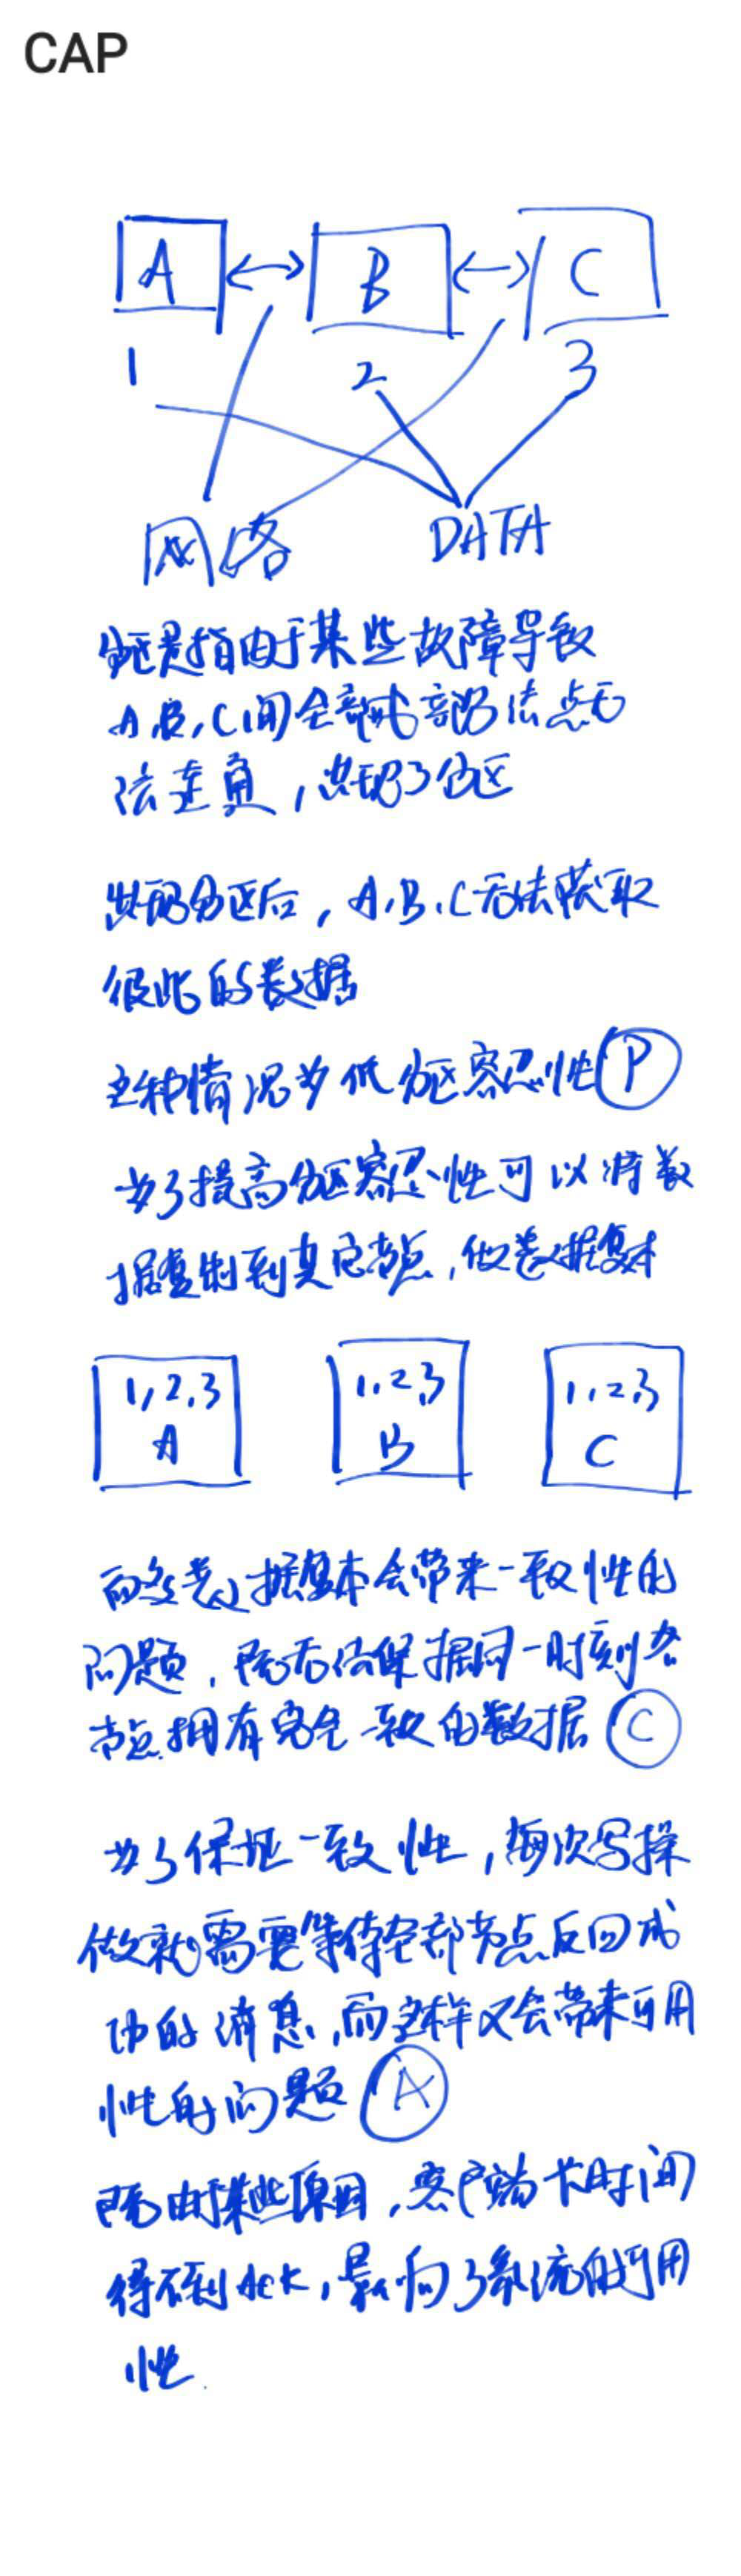 CAP
A B C
1 2 3
网络 DATA
分区是指由于某些故障导致
A、B、C间全部或部分结点无
法连通，出现了分区
出现分区后，A、B、C无法获取
彼此的数据
这种情况为低分区容忍性 P
为了提高分区容忍性可以将数
据复制到其它节点，做数据复本
1,2,3 1,2,3 1,2,3
A B C
而多数据复本会带来一致性的
问题，既无法保据同一时刻各
节点拥有完全一致的数据 C
为了保证一致性，每次写操
做就需要等待全部节点反回成
功的消息，而这样又会带来可用
性的问题 A
既由于某些原因，客户端长时间
得不到Ack，影响了系统的可用
性.